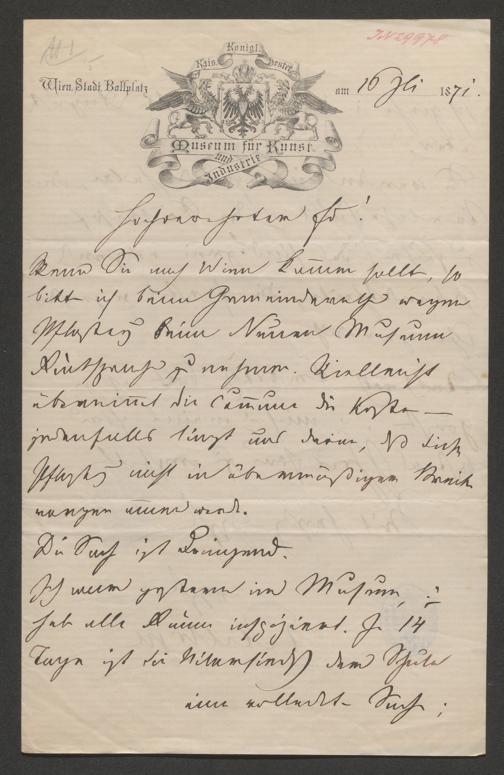 J.N 29978
Kais. Königl. Oester.
Wien, Stadt Ballplatz
am 16 Juli 1871.
Museum für Kunst
und Industrie
Hochverehrter Fr!
Wenn Sie nach Wien kommen sollt, so
bitte ich beim Gemeinderath wegen
Pflaster beim Neuen Museum
Rücksprache zu nehmen. Vielleicht
übernimmt die Commune die Kosten –
jedenfalls liegt uns daran, daß dieses
Pflaster nicht in übermäßiger Breite
werde.
Die Sache ist dringend.
Ich war gestern im Museum, u
hab alle Räume inspizirt. In 14
Tagen ist die der Schule
eine vollendete Sache;